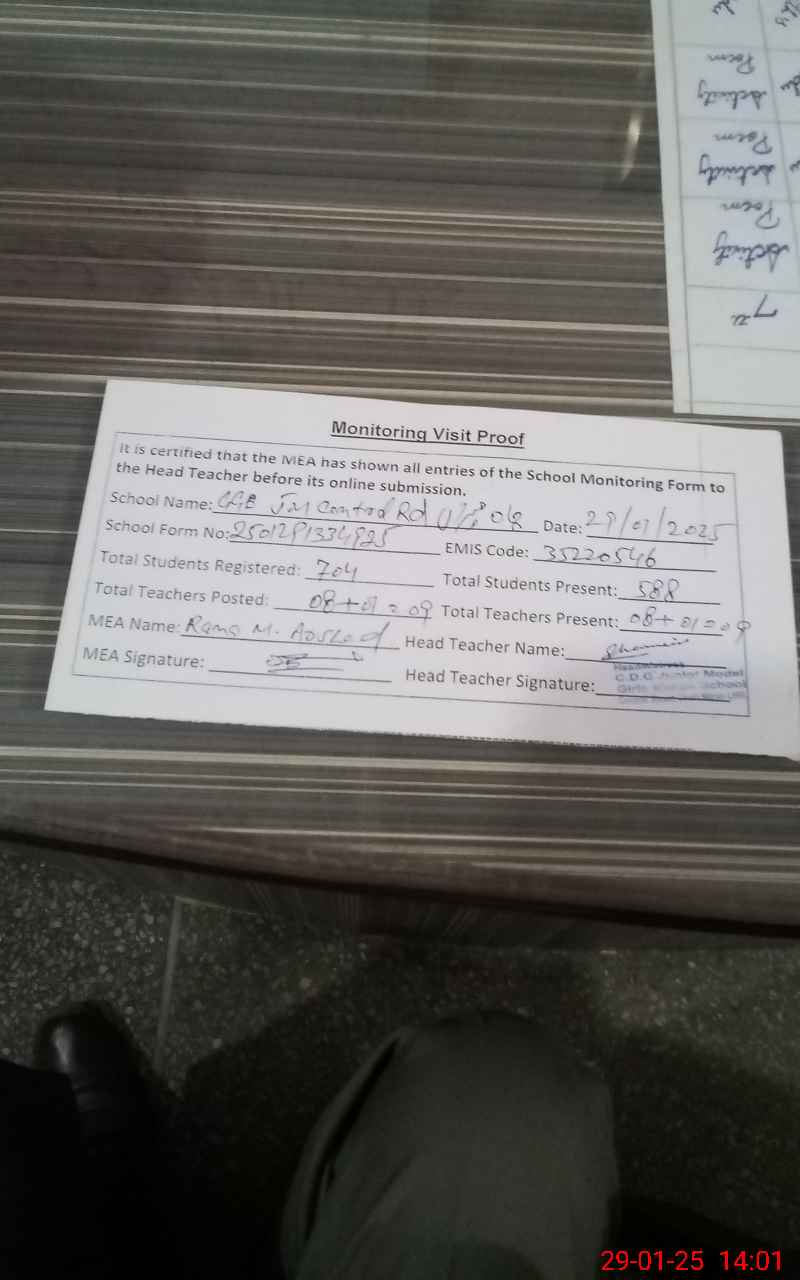 Monitoring Visit Proof
It is certified that the MEA has shown all entries of the School Monitoring Form to
the Head Teacher before its online submission.
School Name: Rd Date: 29/01/2025
School Form No: 2501291334925 EMIS Code: 35220546
Total Students Registered: 704 Total Students Present: 588
Total Teachers Posted: 08+01=09 Total Teachers Present: 08+01=09
MEA Name: Rana M. Head Teacher Name:
MEA Signature: Head Teacher Signature:
C.D.G Junior Model
Girls School
Poem
Activity
Poem
Activity
Poem
Activity
29-01-25 14:01